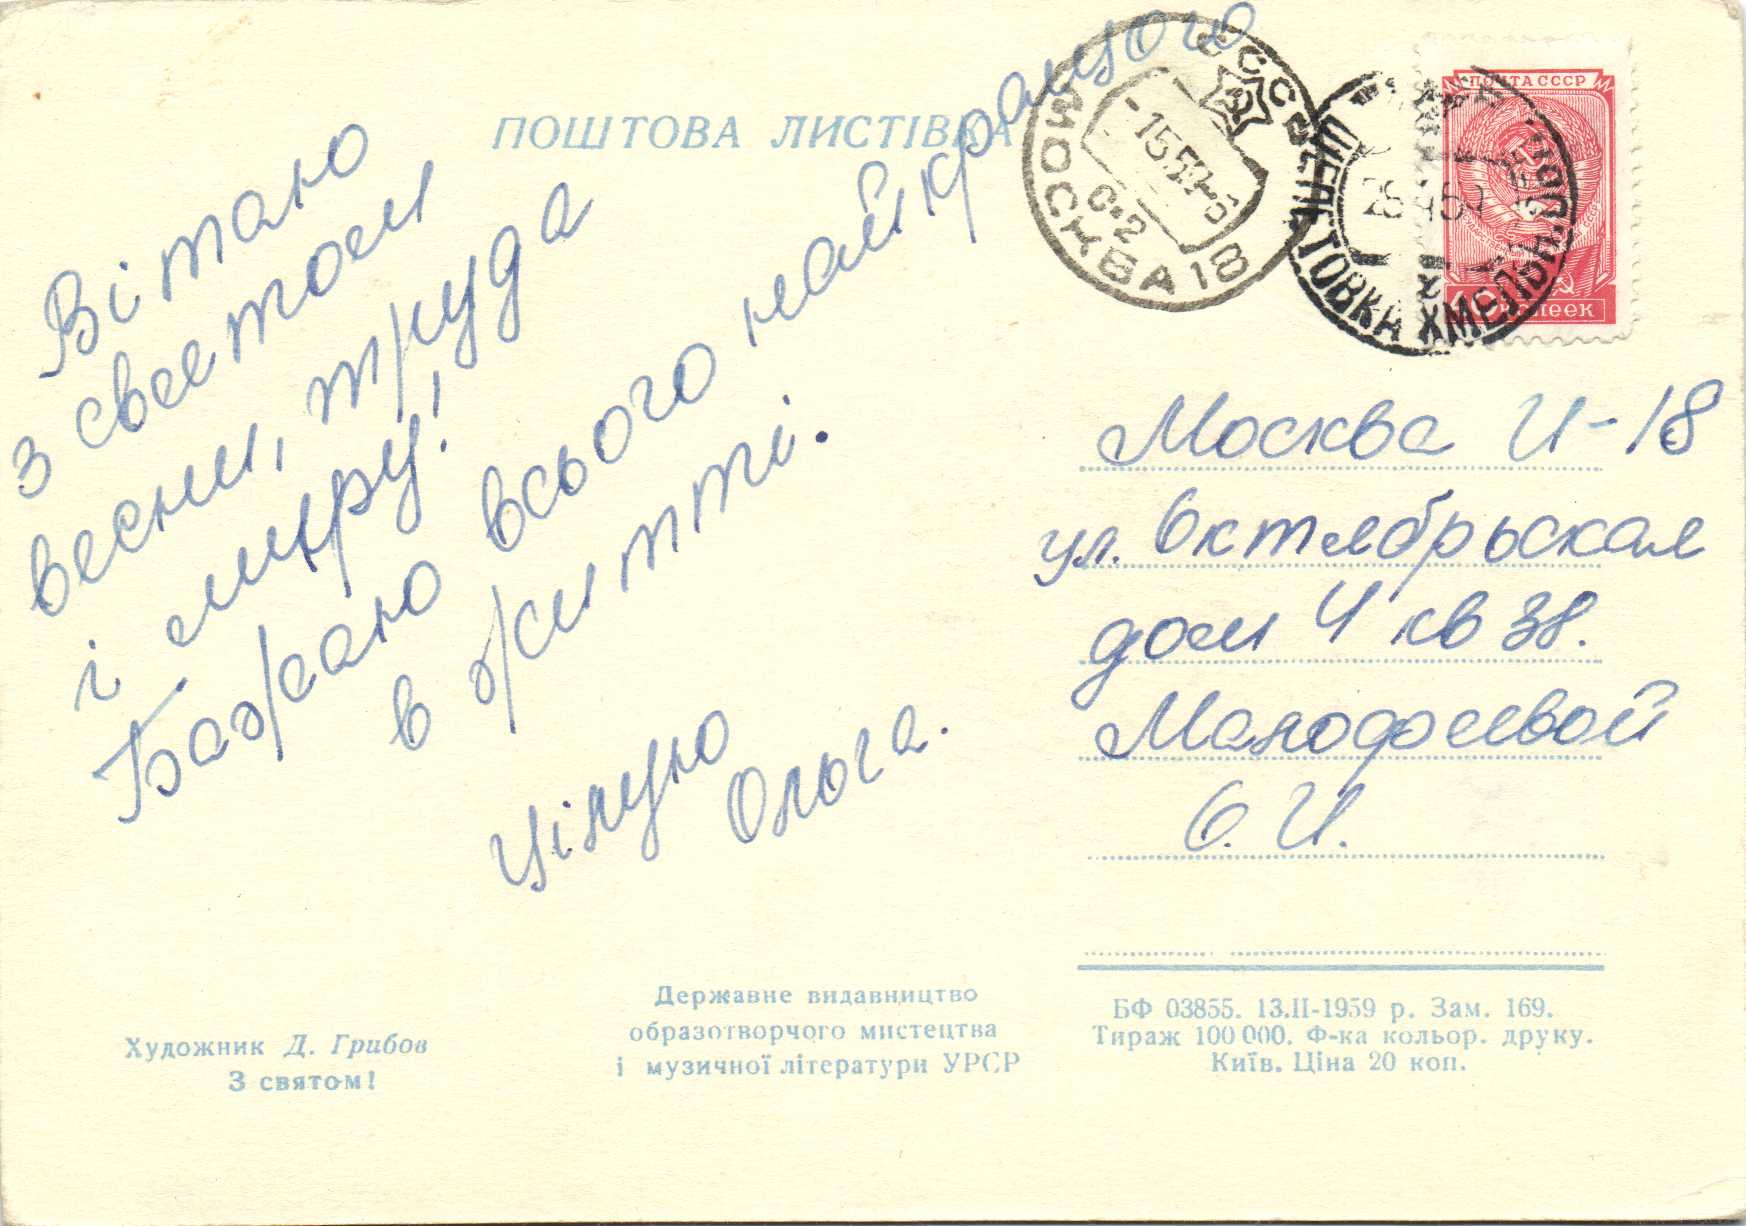 ПОШТОВА ЛИСТІВКА
Вітаю
з святом
весни, труда
і миру!
Бажаю всього найкращого
в житті.
Цілую
Ольга.
МОСКВА 18
ПОЧТА СССР
ШЕПЕТОВКА ХМЕЛЬН.
Москва И-18
ул. Октябрьская
дом 4 кв 38.
О. И.
Художник Д. Грибов
З святом!
Державне видавництво
образотворчого мистецтва
і музичної літератури УРСР
БФ 03855. 13.II-1959 р. Зам. 169.
Тираж 100 000. Ф-ка кольор. друку.
Київ. Ціна 20 коп.